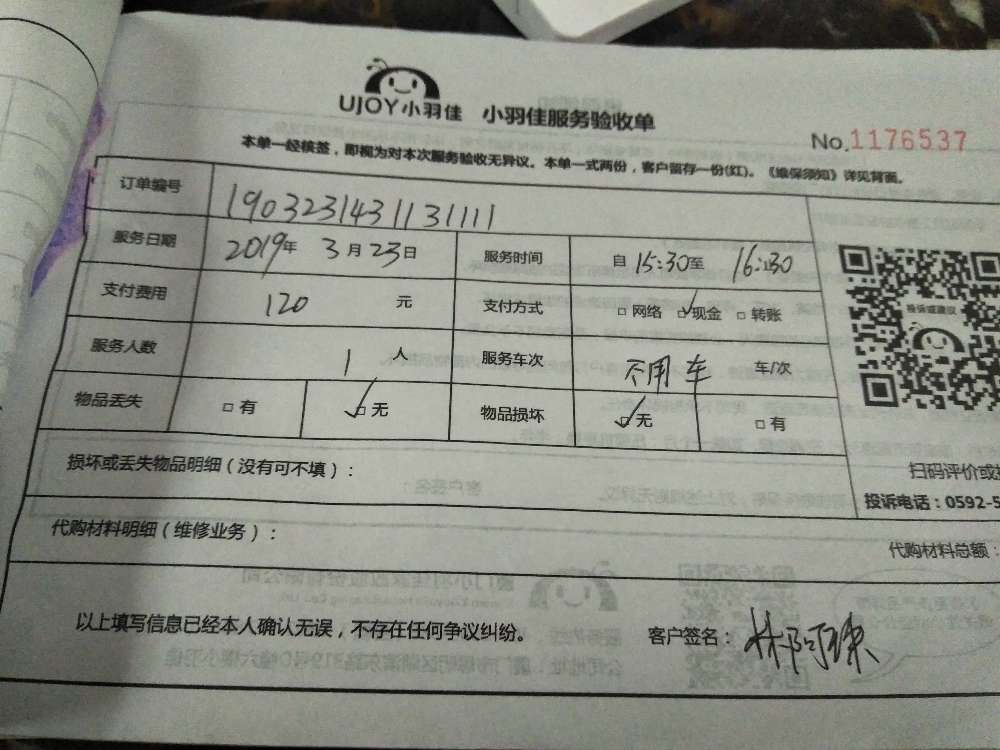 UJOY小羽佳 小羽佳服务验收单
No.1176537
本单一经核签，即视为对本次服务验收无异议。本单一式两份，客户留存一份(红)。《维保须知》详见背面。
订单编号 1903231431131111
服务日期 2019年 3月23日 服务时间 自15:30至 16:30
支付费用 120 元 支付方式 □网络 ☑现金 □转账
投诉或建议
服务人数 1 人 服务车次 不用车 车/次
物品丢失 □有 ☑无 物品损坏 ☑无 □有
损坏或丢失物品明细（没有可不填）：
扫码评价或
投诉电话：0592-5
代购材料明细（维修业务）：
代购材料总额：
以上填写信息已经本人确认无误，不存在任何争议纠纷。 客户签名：